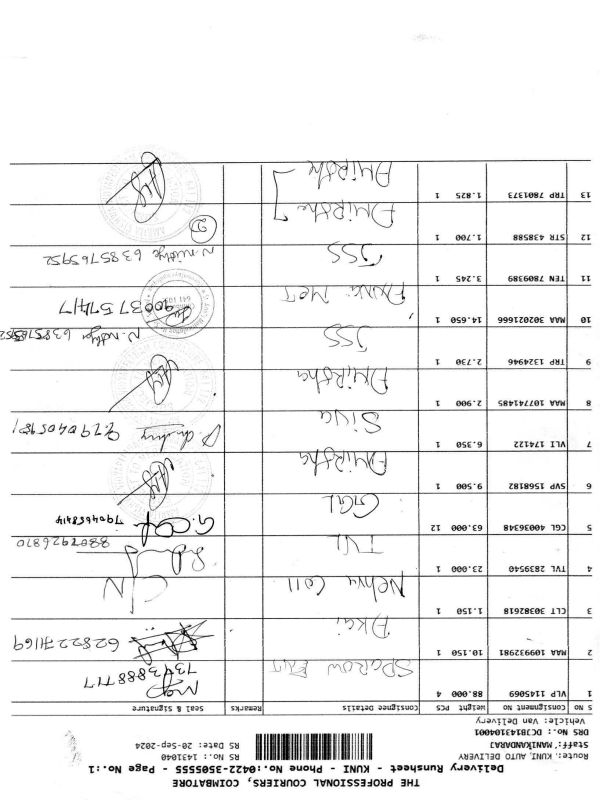 THE PROFESSIONAL COURIERS, COMBATORE
Delivery Runsheet - KUNI - Phone No.:0422-3505555 - Page No.:1
Route:, KUNI, AUTO DELIVERY
Staff: MANIKANDARAJ
DRS No.: DCJB1431040001
Vehicle: Van Delivery
RS No.: 1431040
RS Date: 20-Sep-2024
S No Consignment No Weight PCS Consignee Details Remarks Seal & Signature
1 VLP 1145069 88.000 4 SPAROW ENT 7343888717
2 MAA 1099932981 10.150 1 AKai 6282271169
3 CLT 30382618 1.150 1 Nehru Coll C/N
4 TVL 2839540 23.000 1 TVL 8807926870
5 CGL 40036348 63.000 12 CGL 7904658414
6 SVP 1568182 9.500 1 AMirtha
7 VLI 174122 6.350 1 Siva 9790405981
8 MAA 107741485 2.900 1 AMirtha
9 TRP 1324946 2.730 1 JSS N.nithya 6385765952
10 MAA 302021666 14.650 1 9003757417
11 TEN 7809389 3.245 1 JSS N.nithya 6385765952
12 STR 438588 1.700 1 AMirtha 2
13 TRP 7801373 1.825 1 AMirtha